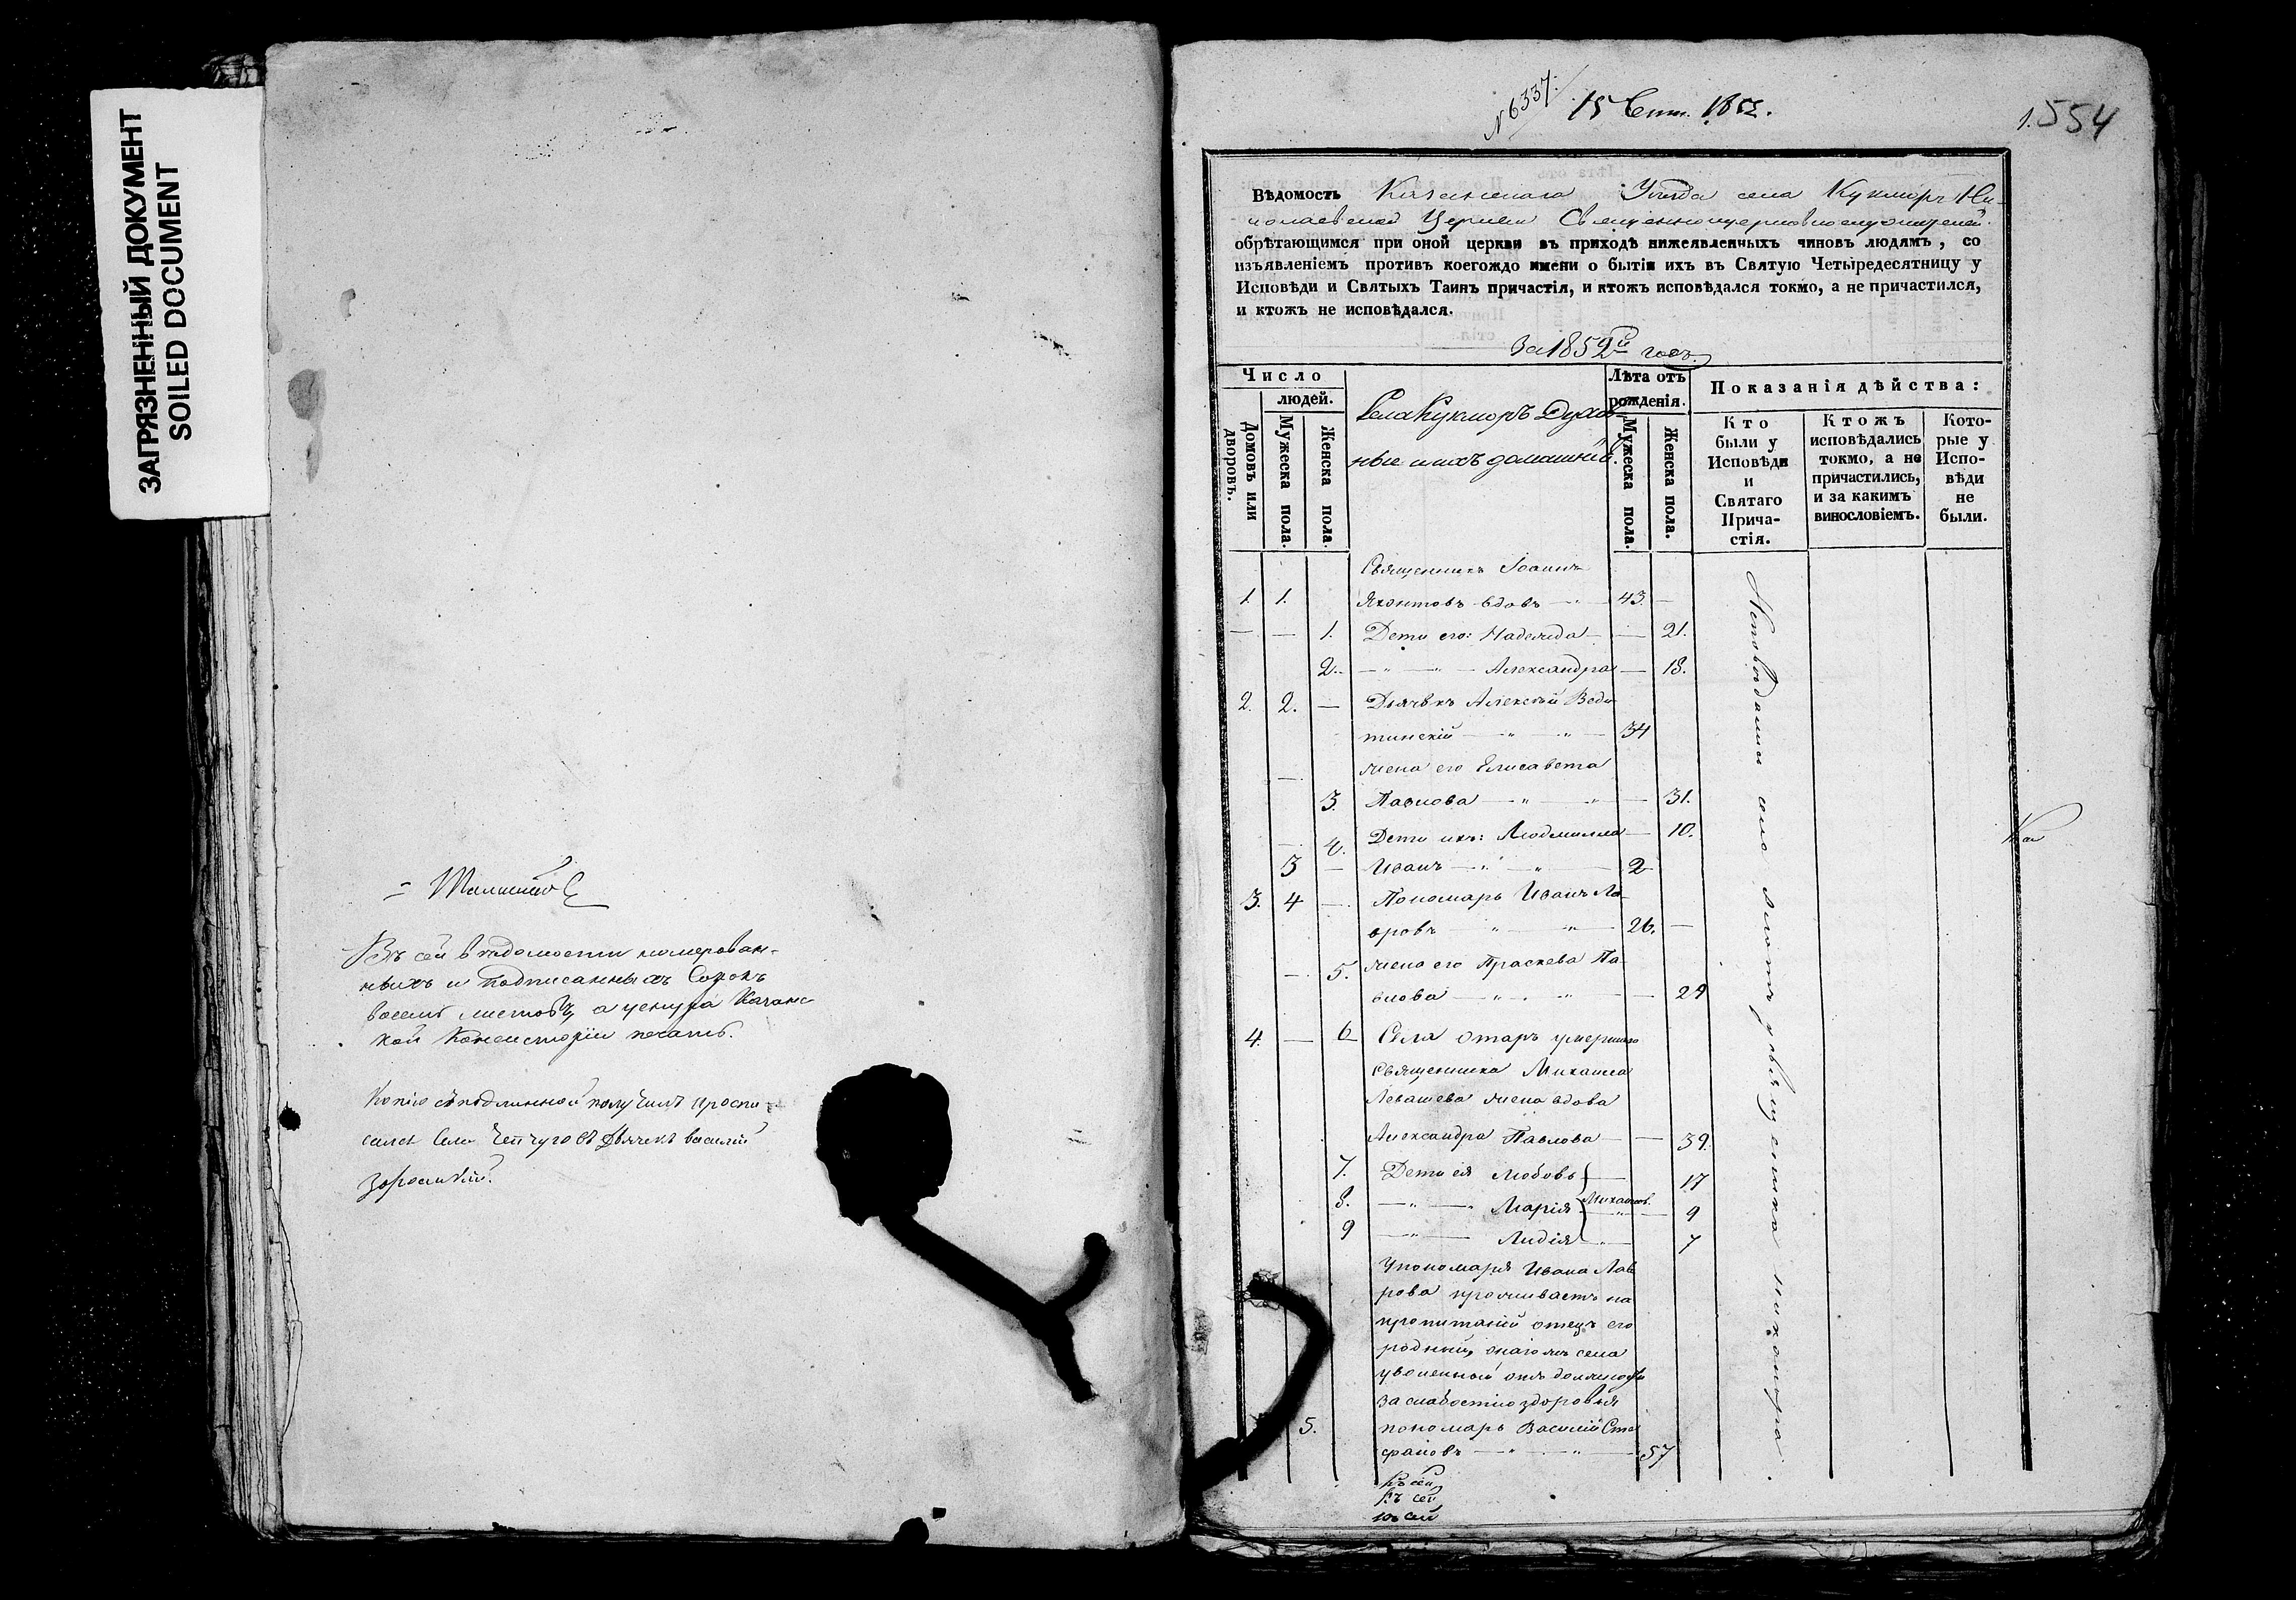 ЗАГРЯЗНЕННЫЙ ДОКУМЕНТ
SOILED DOCUMENT
Въ сей ведомости номерован-
ныхъ и подписанныхъ Сорокъ
восемь листовъ, а у сей Казанс
кой Консисторіи печать.
Копію съ подлинной получилъ и роспи
сался Села Чепчуговъ Дьячекъ василій
N 6337.
15 Сент. 1852.
1.554
Вѣдомость Казанскаго Уѣзда села Кукморъ Ни-
колаевской Церкви Священноцерковнослужителей
обрѣтающимся при оной церкви въ приходѣ нижеявленныхъ чиновъ людямъ, со
изъявленіемъ противъ коегождо имени о бытіи ихъ въ Святую Четыредесятницу у
Исповѣди и Святыхъ Таинъ причастія, и ктожъ исповѣдался токмо, а не причастился,
и ктожъ не исповѣдался.
За 1852й годъ.
Число
людей.
Домовъ или дворовъ.
Мужеска пола.
Женска пола.
Села Кукморъ Духов-
ные и ихъ домашніе.
Лѣта отъ
рожденія.
Мужеска пола.
Женска пола.
Показанія дѣйства:
Кто
были у
Исповѣди
и
Святаго
Прича-
стія.
Ктожъ
исповѣдались
токмо, а не
причастились,
и за какимъ
винословіемъ.
Кото-
рые у
Испо-
вѣди
не
были.
Священникъ Іоаннъ
1. 1. Яхонтовъ вдовъ — 43. —
— — 1. Дети его: Надежда — — 21.
2. — " — " — Александра — 18.
2. 2. — Дьячекъ Алексѣй Веди
тинскій — " — " — 34
жена его Елисавета
3. Павлова — " — " — 31.
4. Дети ихъ: Людмилла — 10.
3 — Иванъ — " — " — 2
3. 4 — Пономарь Иванъ Лав
ровъ — " — " — 26. —
— 5. жена его Праскева Па
влова — " — " — — 24
4. — 6 Села Отаръ умершаго
священника Михаила
Левашева жена вдова
Александра Павлова — — 39.
7. Дети ея Любовь — 17
8. — " — " Марія Михайлов. — 9
9 — " — Лидія — " — 7
У пономаря Ивана Лав
рова проживаетъ на
пропитаніи отецъ его
родный, онагожъ села
уволенный отъ должности
за слабостію здоровья
5. пономарь Василій Сте
фановъ — " — " — 57
Къ сей
Къ сей
Къ сей